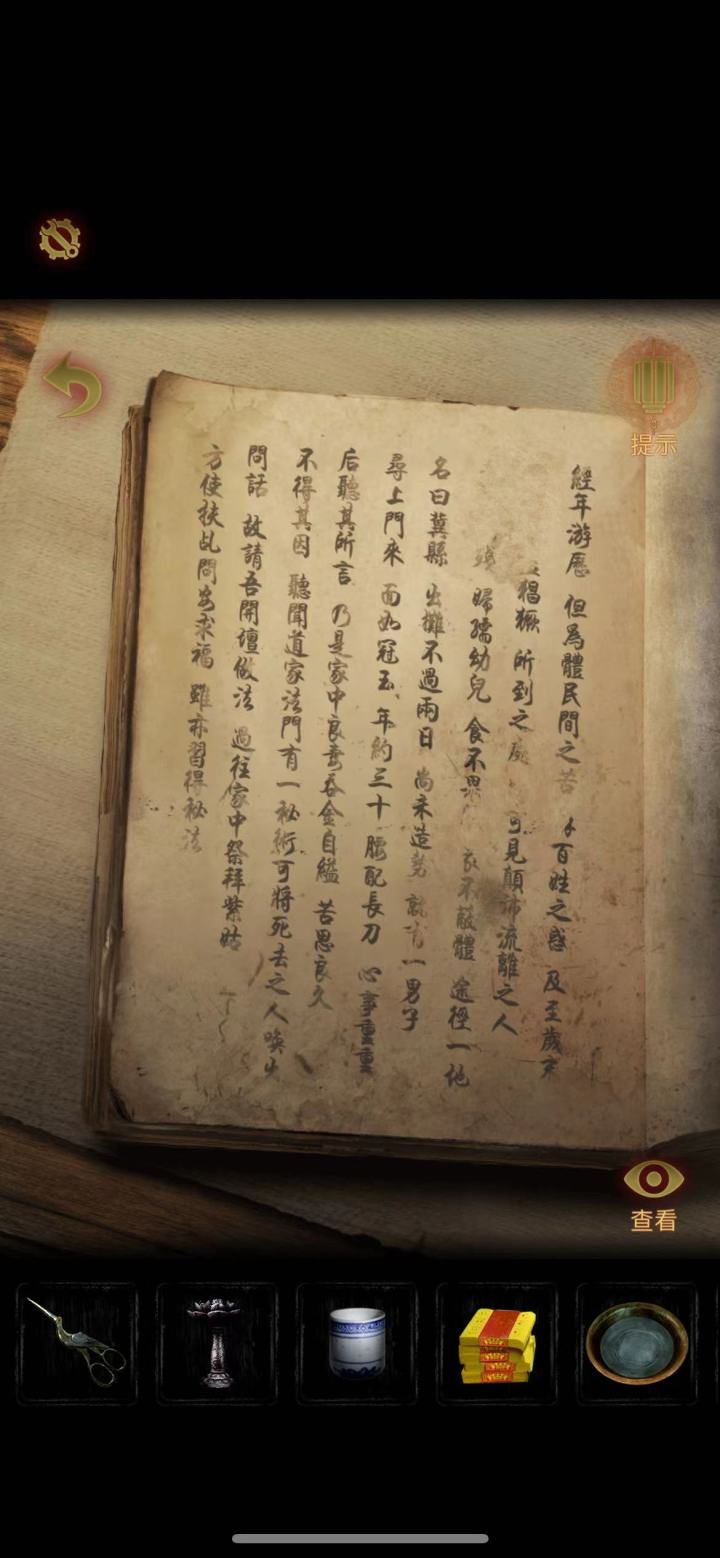 提示
經年游歷 但為體民間之苦 百姓之惑 及至歲末
猖獗 所到之處 可見顛沛流離之人
歸孺幼兒 食不果 衣不蔽體 途徑一地
名曰冀縣 出攤不過兩日 尚未造勢 就有一男子
尋上門來 面如冠玉 年約三十 腰配長刀 心事重重
后聽其所言 乃是家中良妻吞金自縊 苦思良久
不得其因 聽聞道家法門有一秘術可將死去之人喚出
問話 故請吾開壇做法 過往家中祭拜紫姑
方使扶乩問安求福 雖亦習得秘法
查看